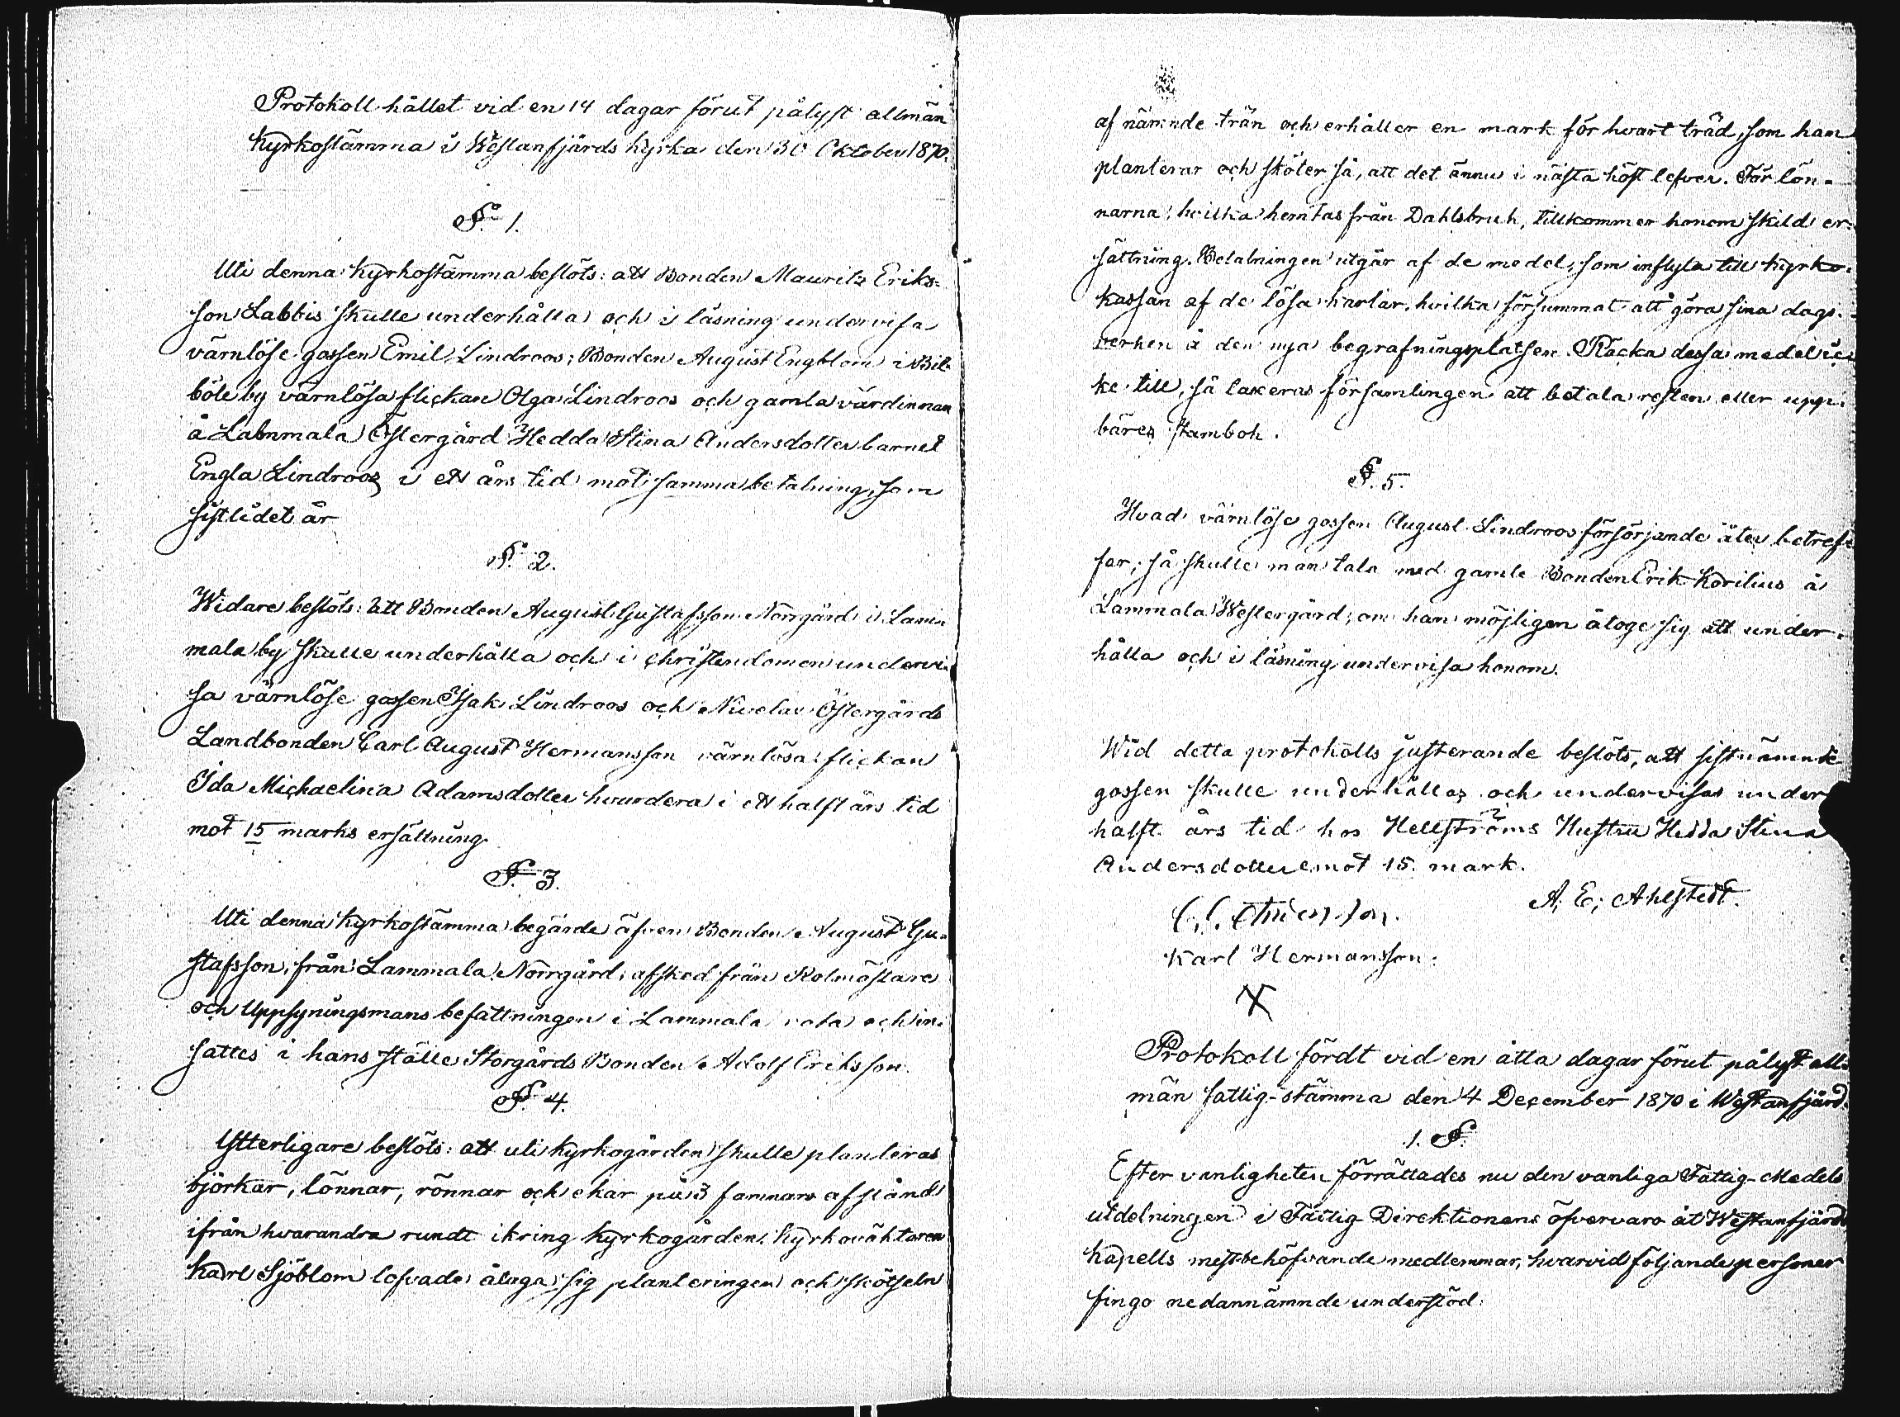 Protokoll hållet vid en 14 dagar förut pålyst allmän
kyrkostämma i Westanfjärds kyrka den 30 Oktober 1870.
§ 1.
Uti denna kyrkostämma beslöts: att Bonden Mauritz Eriks-
son Labbis skulle underhålla och i läsning undervisa
värnlöse gossen Emil Lindroos; Bonden August Engblom i Bil-
böle by värnlösa flickan Olga Lindroos och gamla värdinnan
å Lammala Östergård Hedda Stina Andersdotter barnet
Engla Lindroos i ett års tid mot samma betalning, som
sistlidet år
§ 2.
Widare beslöts: att Bonden August Gustafsson Norrgård i Lam-
mala by skulle underhålla och i christendomen undervi-
sa värnlöse gossen Isak Lindroos och Nivelax Östergårds
Landbonden Carl August Hermansson värnlösa flickan
Ida Michaelina Adamsdotter hvardera i ett halft års tid
mot 15 marks ersättning.
§ 3.
Uti denna kyrkostämma begärde äfven Bonden August Gu-
stafsson, från Lammala Norrgård, afsked från Rotmästare
och Uppsyningsmans befattningen i Lammala rota och in-
sattes i hans ställe Storgårds Bonden Adolf Eriksson.
§ 4.
Ytterligare beslöts: att uti kyrkogården skulle planteras
björkar, lönnar, rönnar och ekar på 3 famnars afstånd
ifrån hvarandra rundt ikring kyrkogården. Kyrkoväktaren
Karl Sjöblom lofvade åtaga sig planteringen och skötseln
af nämnde trän och erhåller en mark för hvart träd, som han
planterar och sköter så, att det ännu i nästa höst lefver. För lön-
narna, hvilka hemtas från Dahlsbruk, tillkommer honom skild er-
sättning. Betalningen utgår af de medel, som inflyta till kyrko-
kassan af de lösa karlar, hvilka försummat att göra sina dags-
verken å den nya begrafningsplatsen. Räcka dessa medel ic-
ke till, så taxeras församlingen att betala resten eller upp-
bäres stambok.
§. 5.
Hvad värnlöse gossen August Lindroos försörjande åter betref-
far, så skulle man tala med gamle Bonden Erik Korilius å
Lammala Westergård, om han möjligen åtoge sig att under-
hålla och i läsning undervisa honom.
Wid detta protokolls justerande beslöts, att sistnämnde
gossen skulle underhållas och undervisas under
halft års tid hos Hellströms Hustru Hedda Stina
Andersdotter emot 15 mark.
A. E. Ahlstedt.
Karl Hermansson.
X
Protokoll fördt vid en åtta dagar förut pålyst all-
män fattig-stämma den 4 December 1870 i Westanfjärd.
1. §.
Efter vanligheten förrättades nu den vanliga Fattig-Medels
utdelningen i Fattig Direktionens öfvervaro åt Westanfjärds
kapells mest behöfvande medlemmar, hvarvid följande personer
fingo nedannämnde understöd: